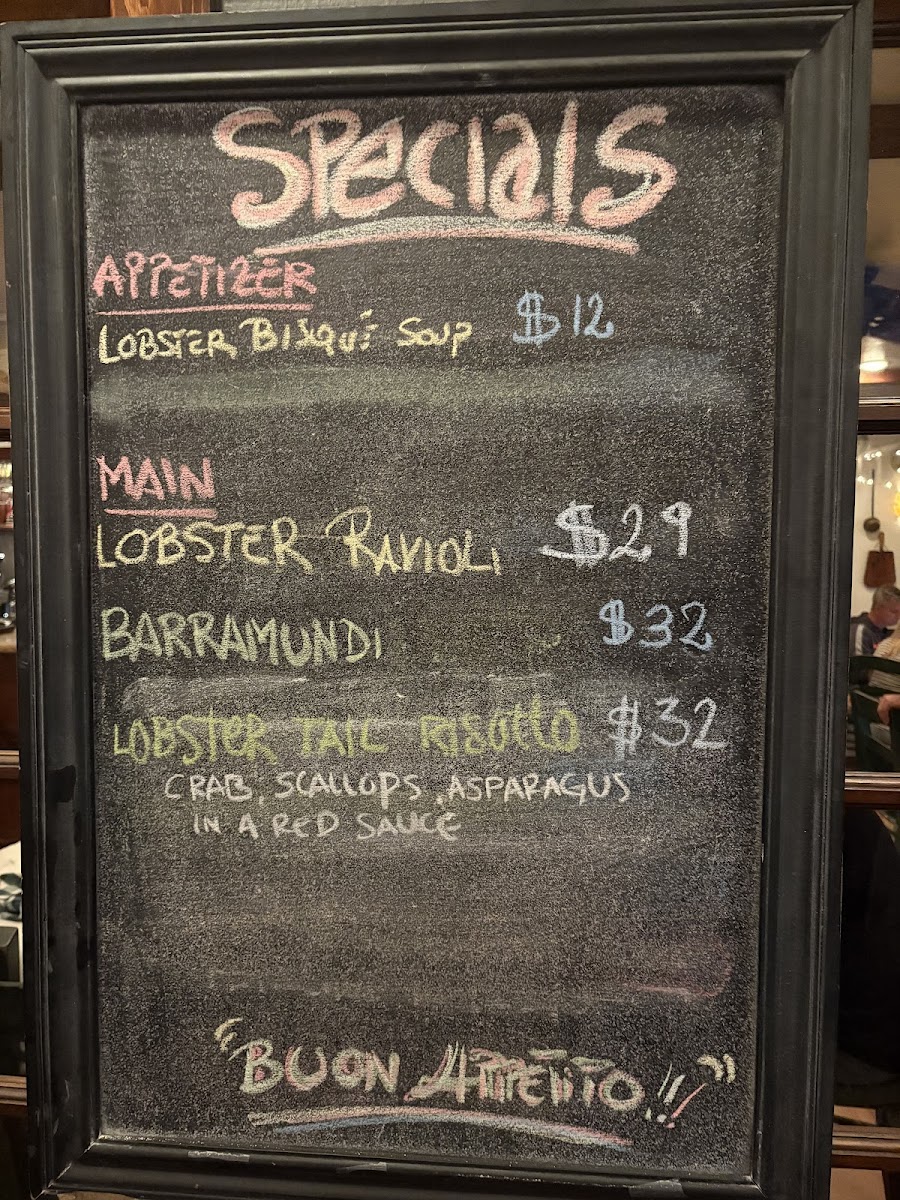 SPECIALS
APPETIZER
LOBSTER BISQUÉ SOUP $12
MAIN
LOBSTER RAVIOLI $29
BARRAMUNDI $32
LOBSTER TAIL RISOTTO $32
CRAB, SCALLOPS, ASPARAGUS
IN A RED SAUCE
"BUON APPETITO!!"